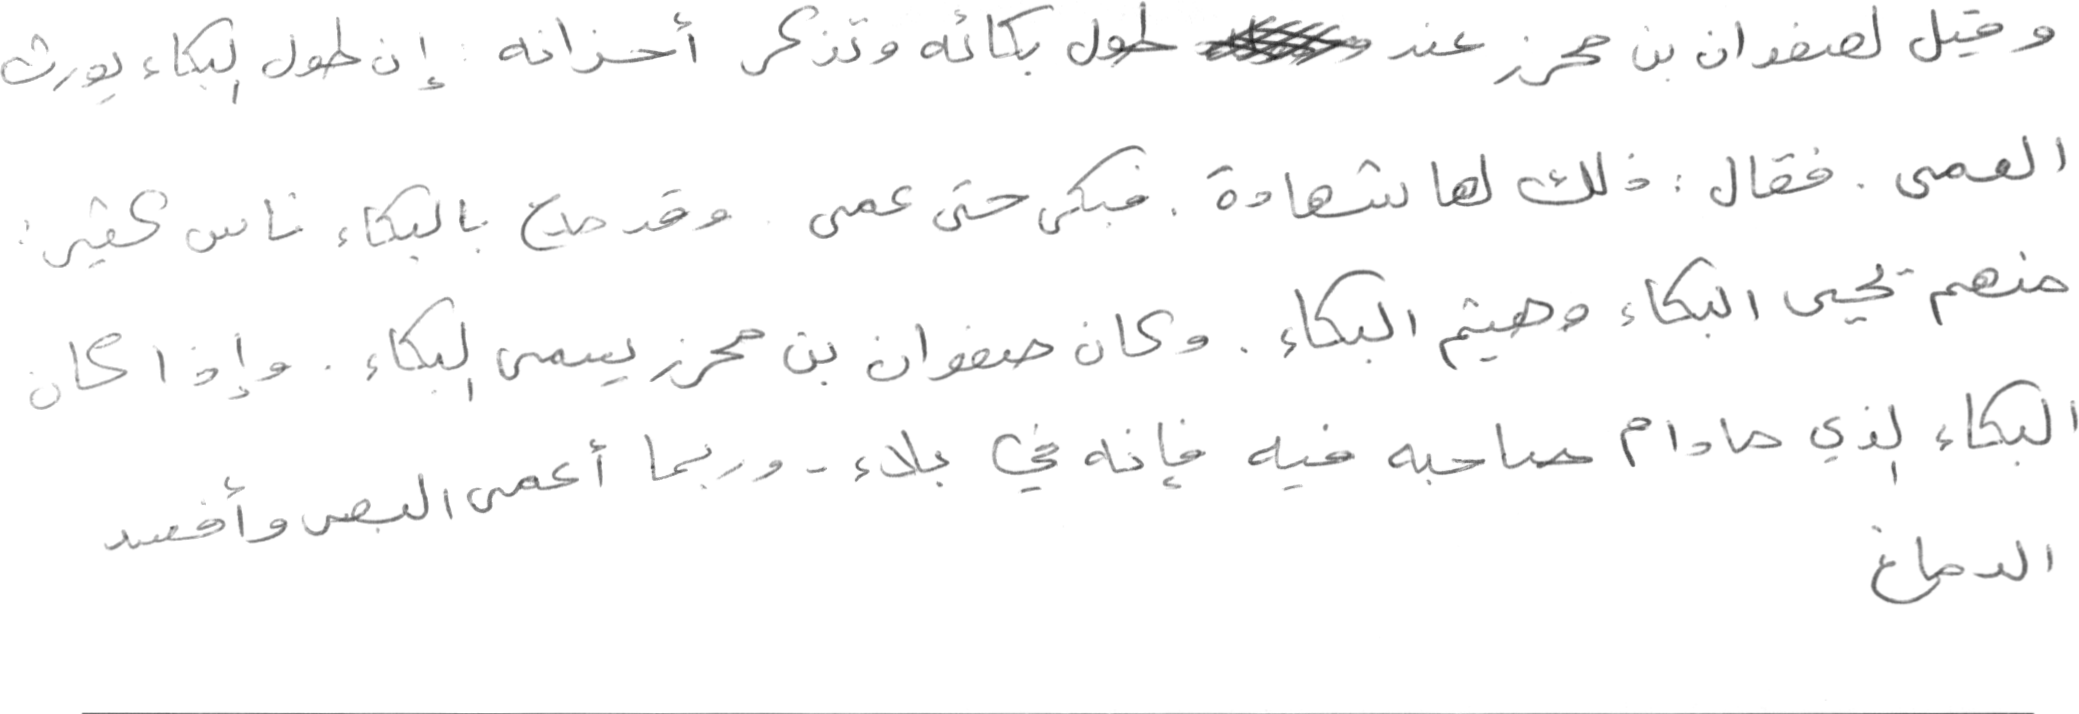 وقيل لصفوان بن محرز عند طول بكائه وتذكر أحزانه : إن طول البكاء يورث
العمى . فقال : ذلك لها شهادة . فبكى حتى عمي . وقد مدح بالبكاء ناس كثير :
منهم يحيى البكاء وهيثم البكاء . وكان صفوان بن محرز يسمى البكاء . وإذا كان
البكاء الذي مادام صاحبه فيه فإنه في بلاء - وربما أعمى البصر وأفسد
الدماغ